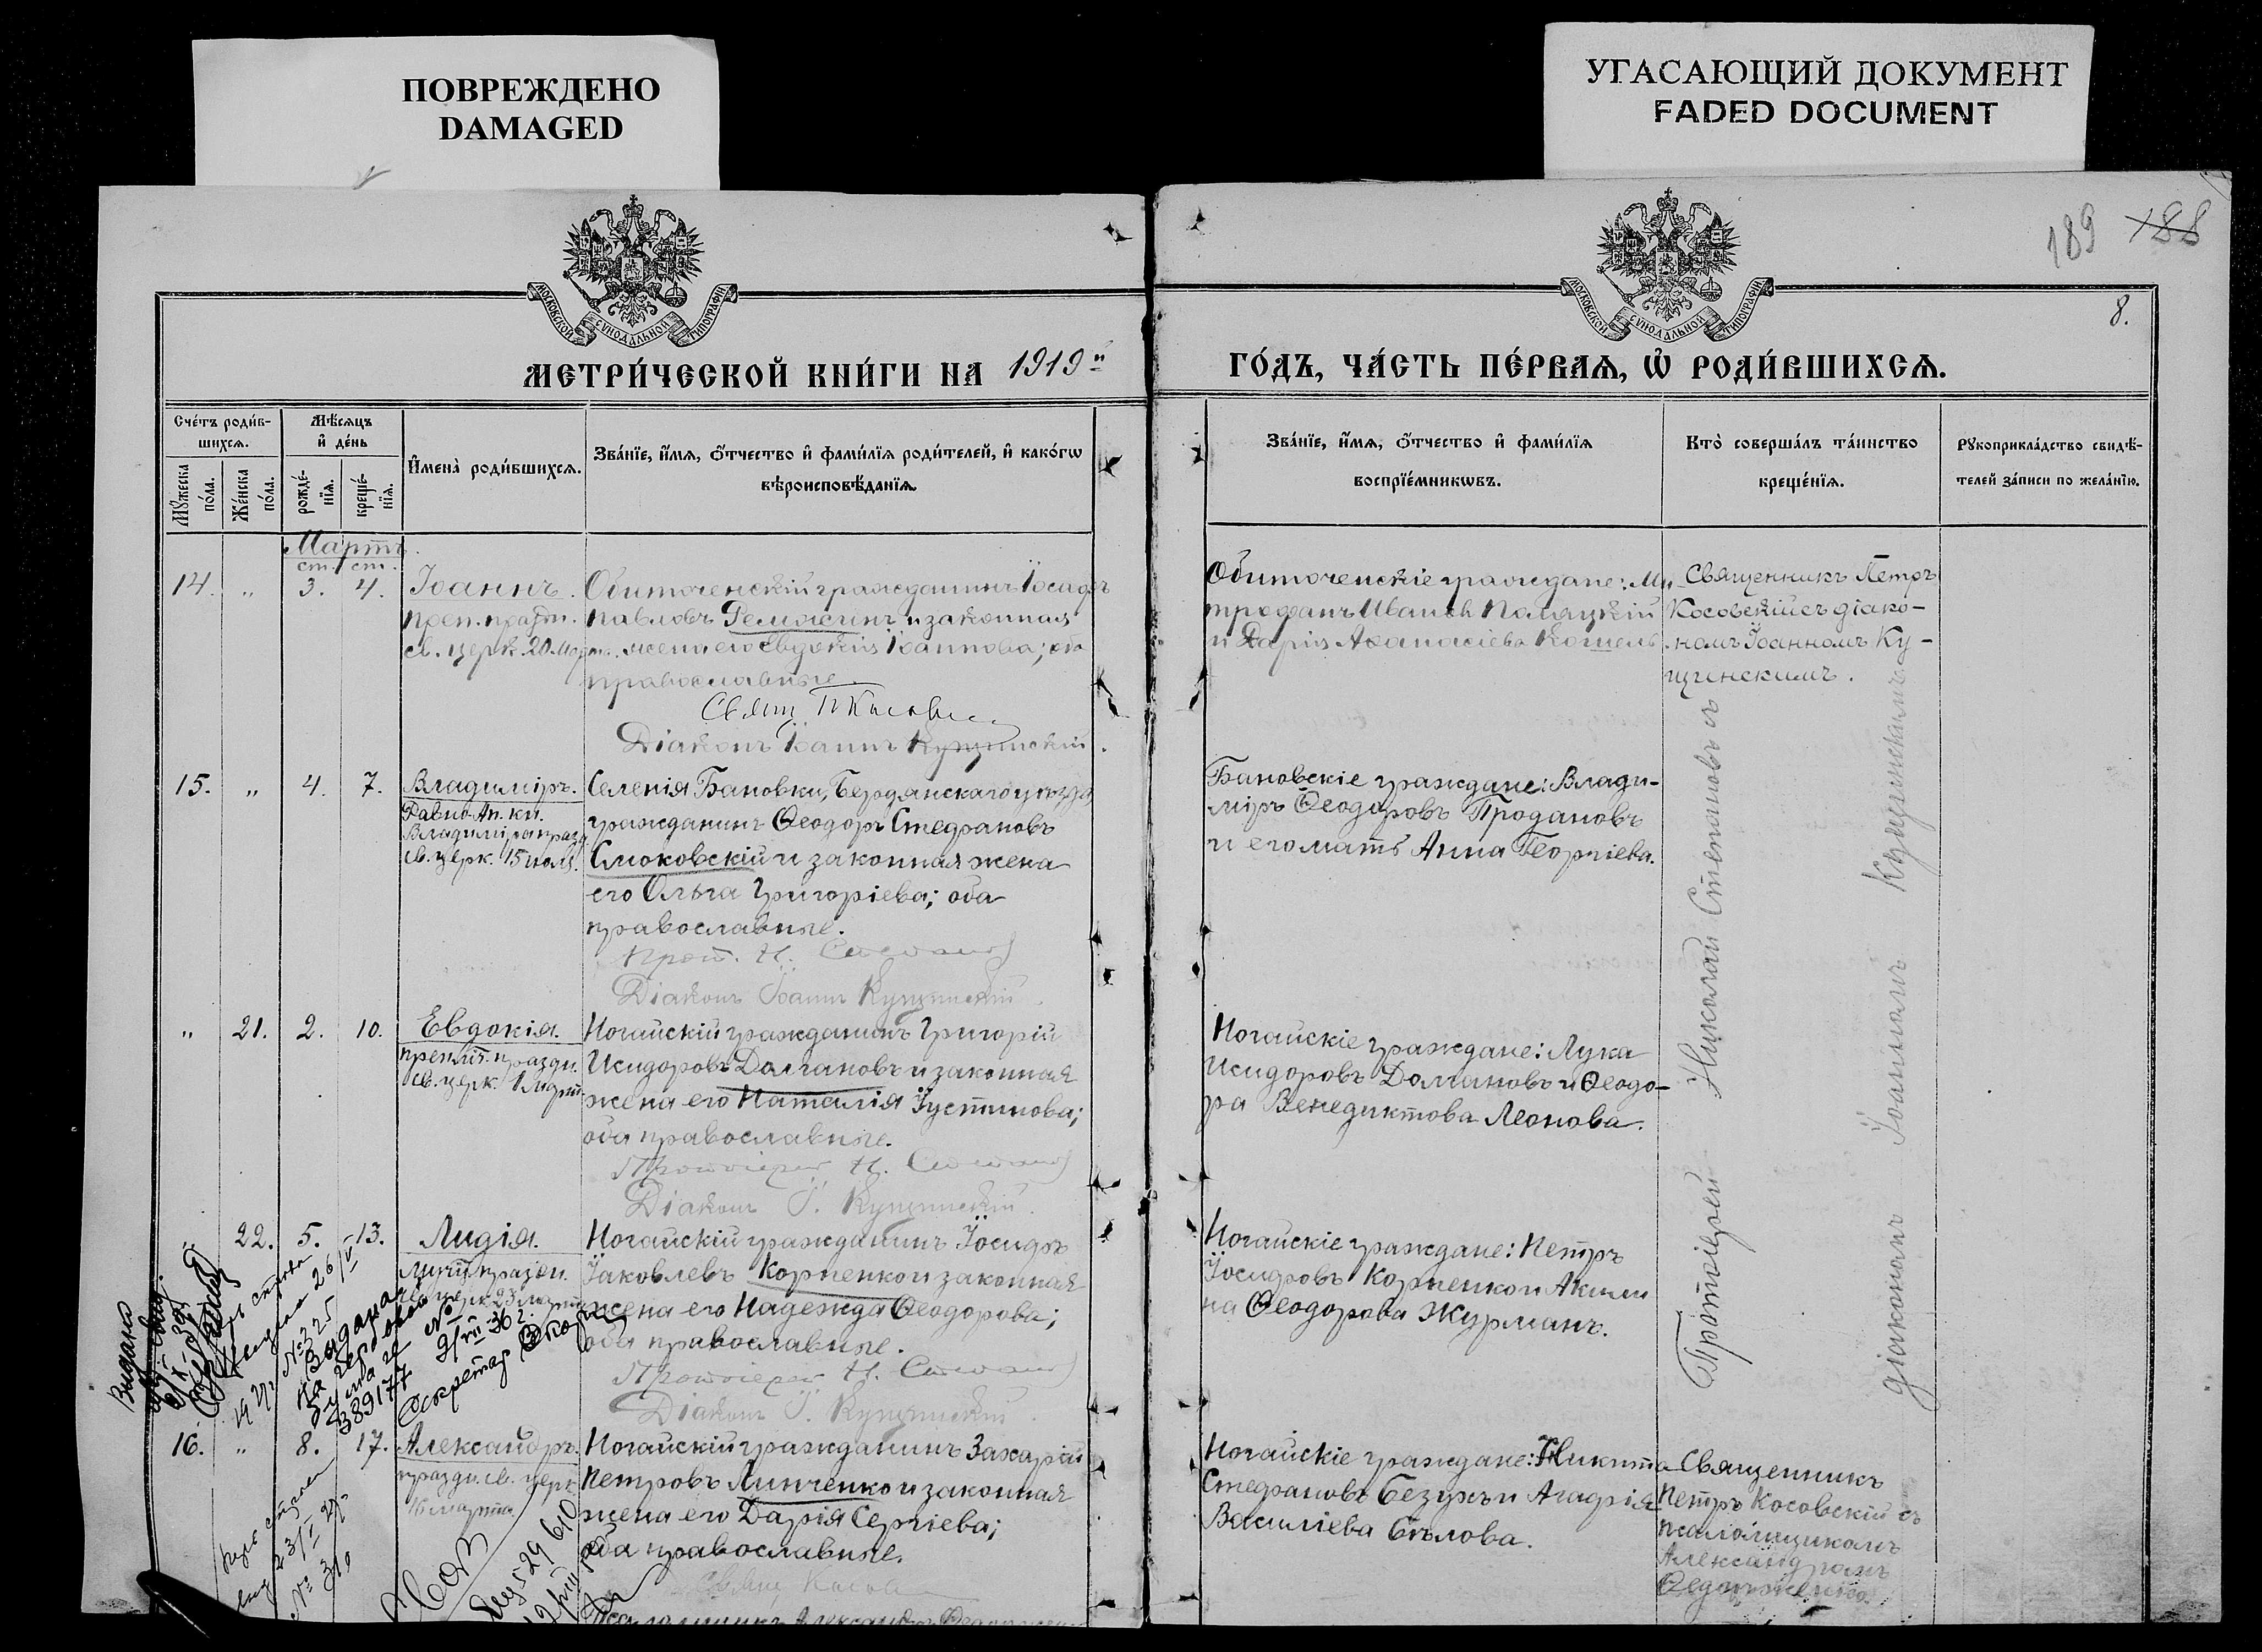 ПОВРЕЖДЕНО
DAMAGED
УГАСАЮЩИЙ ДОКУМЕНТ
FADED DOCUMENT
189 188
8.
МОСКОВСКОЙ СѴНОДАЛЬНОЙ ТИПОГРАФІИ
МОСКОВСКОЙ СѴНОДАЛЬНОЙ ТИПОГРАФІИ
МЕТРИ́ЧЕСКОЙ КНИ́ГИ НА 1919й
ГО́ДЪ, ЧА́СТЬ ПЕ́РВАѦ, Ѡ҆ РОДИ́ВШИХСѦ.
Сче́тъ роди́в-
шихсѧ.
Мꙋ́жеска
по́ла.
Же́нска
по́ла.
Мѣ́сѧцъ
и҆ де́нь
рожде́-
нїѧ.
креще́-
нїѧ.
И҆мена̀ роди́вшихсѧ.
Зва́нїе, и҆́мѧ, ѻ҆́тчество и҆ фами́лїѧ роди́телей, и҆ како́гѡ
вѣроисповѣ́данїѧ.
Зва́нїе, и҆́мѧ, ѻ҆́тчество и҆ фами́лїѧ
воспрїе́мникѡвъ.
Кто̀ соверша́лъ та́инство
креще́нїѧ.
Рꙋкоприкла́дство свидѣ́-
телей за́писи по жела́нїю.
Мартъ.
ст. ст.
14. „ 3. 4.
Іоаннъ.
св. церк. 20 Март.
Обиточенскій гражданинъ Іосифъ
Павловъ и законная
жена его Евдокія Іоаннова; оба
православные.
Свящ П Косовс
Діаконъ Іоаннъ Кущинскій.
Обиточенскіе граждане: Ми
трофанъ Ивановъ
и Дарія Аѳанасіева Кошель.
Священникъ Петръ
Косовскій съ діако-
номъ Іоанномъ Ку-
щинскимъ.
15. „ 4. 7.
Владиміръ.
Равно-Ап. кн.
Владиміра празд.
св. церк. 15 іюля.
Селенія Бановки, Бердянскаго уѣзда
гражданинъ Ѳеодоръ Стефановъ
Смоковскій и законная жена
его Ольга Григоріева; оба
православные.
Прот. Н. Степанов
Діаконъ Іоаннъ Кущинскій.
Бановскіе граждане: Влади-
міръ Ѳеодоровъ Продановъ
и его мать Анна Георгіева.
Протоіерей Николай Степановъ съ
діакономъ Іоанномъ Кущинскимъ
„ 21. 2. 10.
Евдокія.
св. церк. 1 Март.
Ногайскій гражданинъ Григорій
Исидоровъ Домановъ и законная
жена его Наталія Іустинова;
оба православные.
Протоіерей Н. Степанов
Діаконъ І. Кущинскій.
Ногайскіе граждане: Лука
Исидоровъ Домановъ и Ѳеодо-
ра Венедиктова Леонова.
„ 22. 5. 13.
Лидія.
муч. праздн.
св. церк. 23 марта
Ногайскій гражданинъ Іосифъ
Іаковлевъ Корненко и законная
жена его Надежда Ѳеодорова;
оба православные.
Протоіерей Н. Степанов
Діаконъ І. Кущинскій.
Ногайскіе граждане: Петръ
Іосифовъ Корненко и Акили
на Ѳеодорова Журманъ.
Видано
№325
Видана
на гербовой
бумаге №
389177 9/VII-36 г.
Секретар
16. „ 8. 17.
Александръ.
праздн. св. церк.
Ногайскій гражданинъ Захарій
Петровъ Линченко и законная
жена его Дарія Сергіева;
оба православные.
Свящ Косов
Псаломщикъ Александръ
Ногайскіе граждане: Никита
Стефановъ Безухъ и Агафія
Василіева Бѣлова.
Священникъ
Петръ Косовскій съ
псаломщикомъ
Александромъ
23/I
№ 310
529610